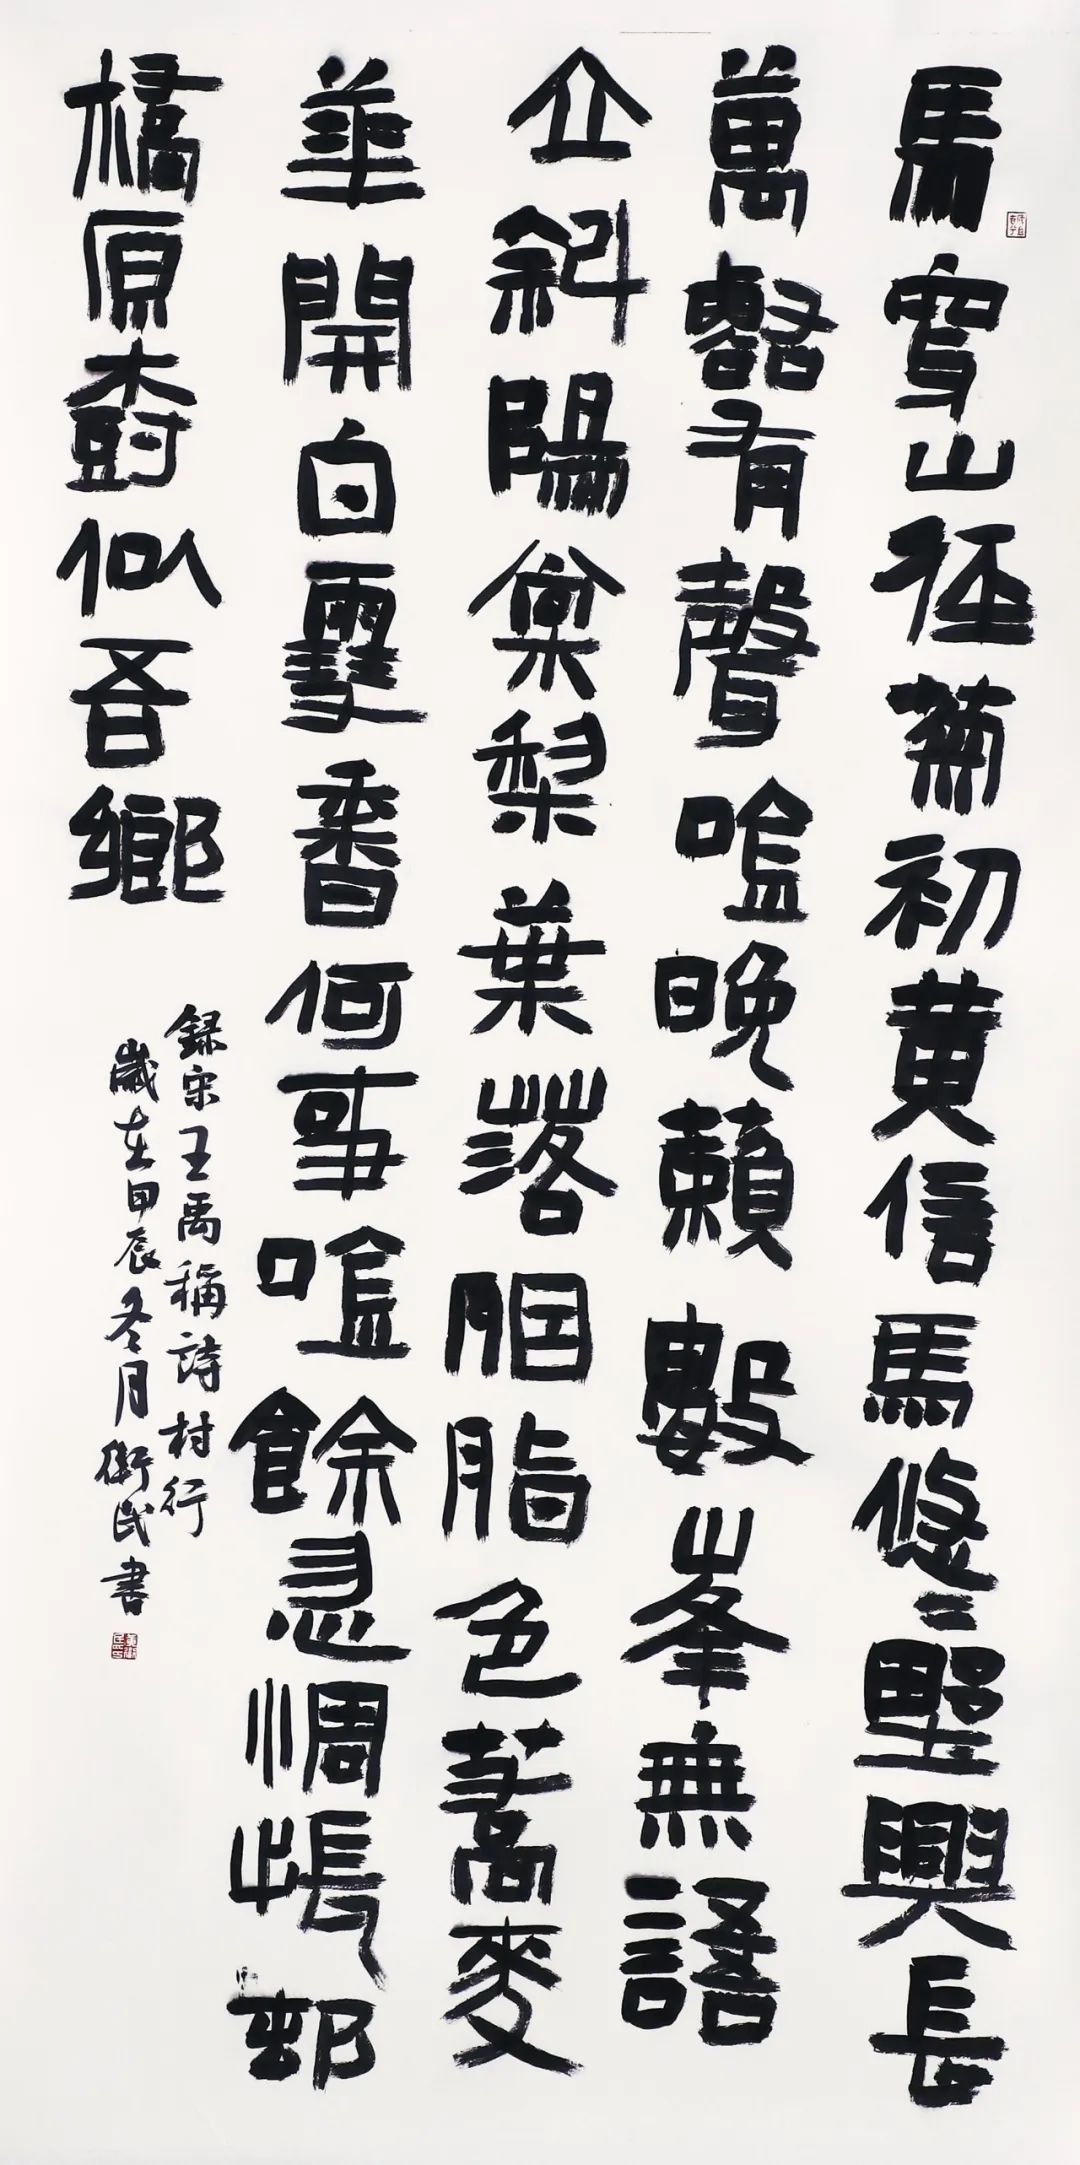 馬穿山徑菊初黃信馬悠〻野興長
萬壑有聲唫晚籟數峯無語
立斜陽棠梨葉落胭脂色蕎麥
華開白雪香何事唫餘忽惆悵邨
橋原樹似吾鄉
錄宋王禹稱詩村行
歲在甲辰冬月衛民書